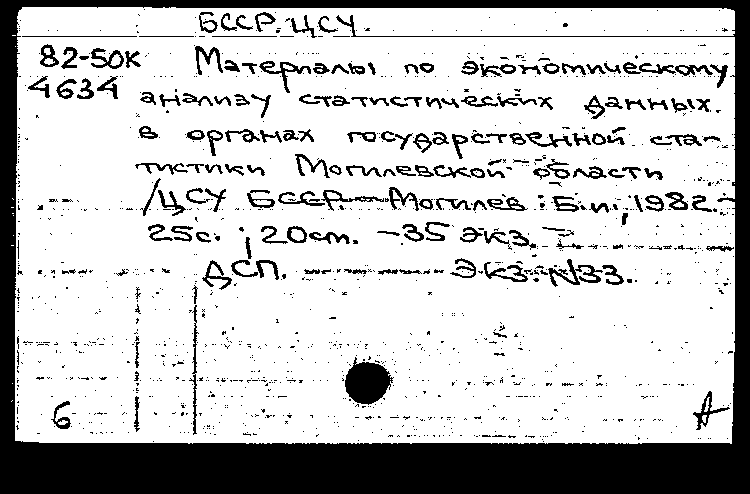 БССР. ЦСУ.
82-50К Материалы по экономическому
4634 анализу статистических данных.
в органах государственной ста-
тистики Могилевской области
/ЦСУ БССР. - Могилев : Б.и., 1982. -
25с. ; 20см. - 35 экз. -
ДСП. Экз. №33.
6 А